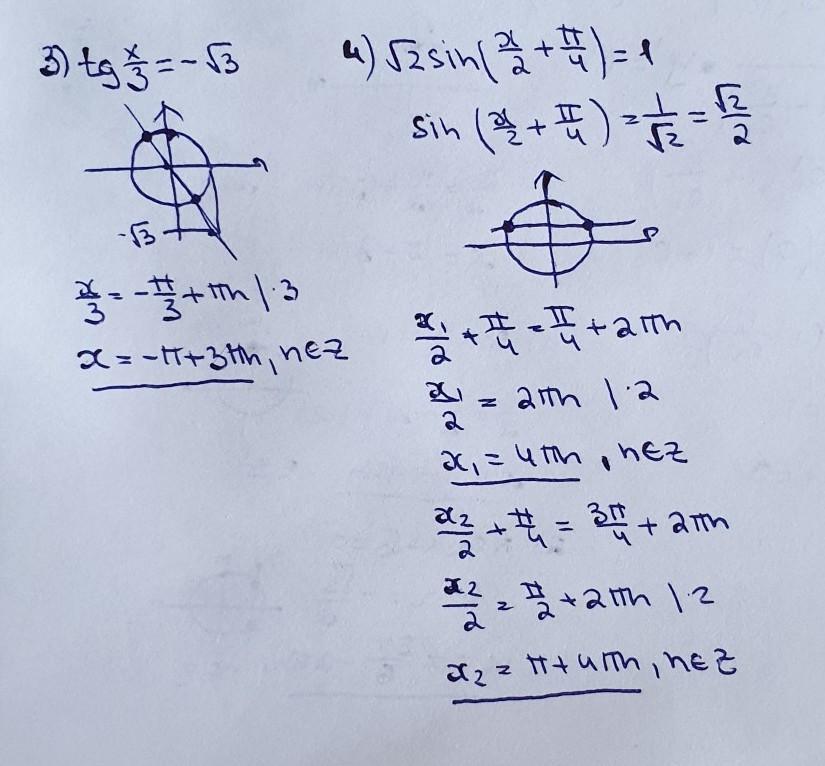 3) tg x/3 = -√3
-√3
x/3 = -π/3 + πn |·3
x = -π + 3πn, n∈Z
4) √2 sin(x/2 + π/4) = 1
sin (x/2 + π/4) = 1/√2 = √2/2
x₁/2 + π/4 = π/4 + 2πn
x₁/2 = 2πn |·2
x₁ = 4πn, n∈Z
x₂/2 + π/4 = 3π/4 + 2πn
x₂/2 = π/2 + 2πn |·2
x₂ = π + 4πn, n∈Z